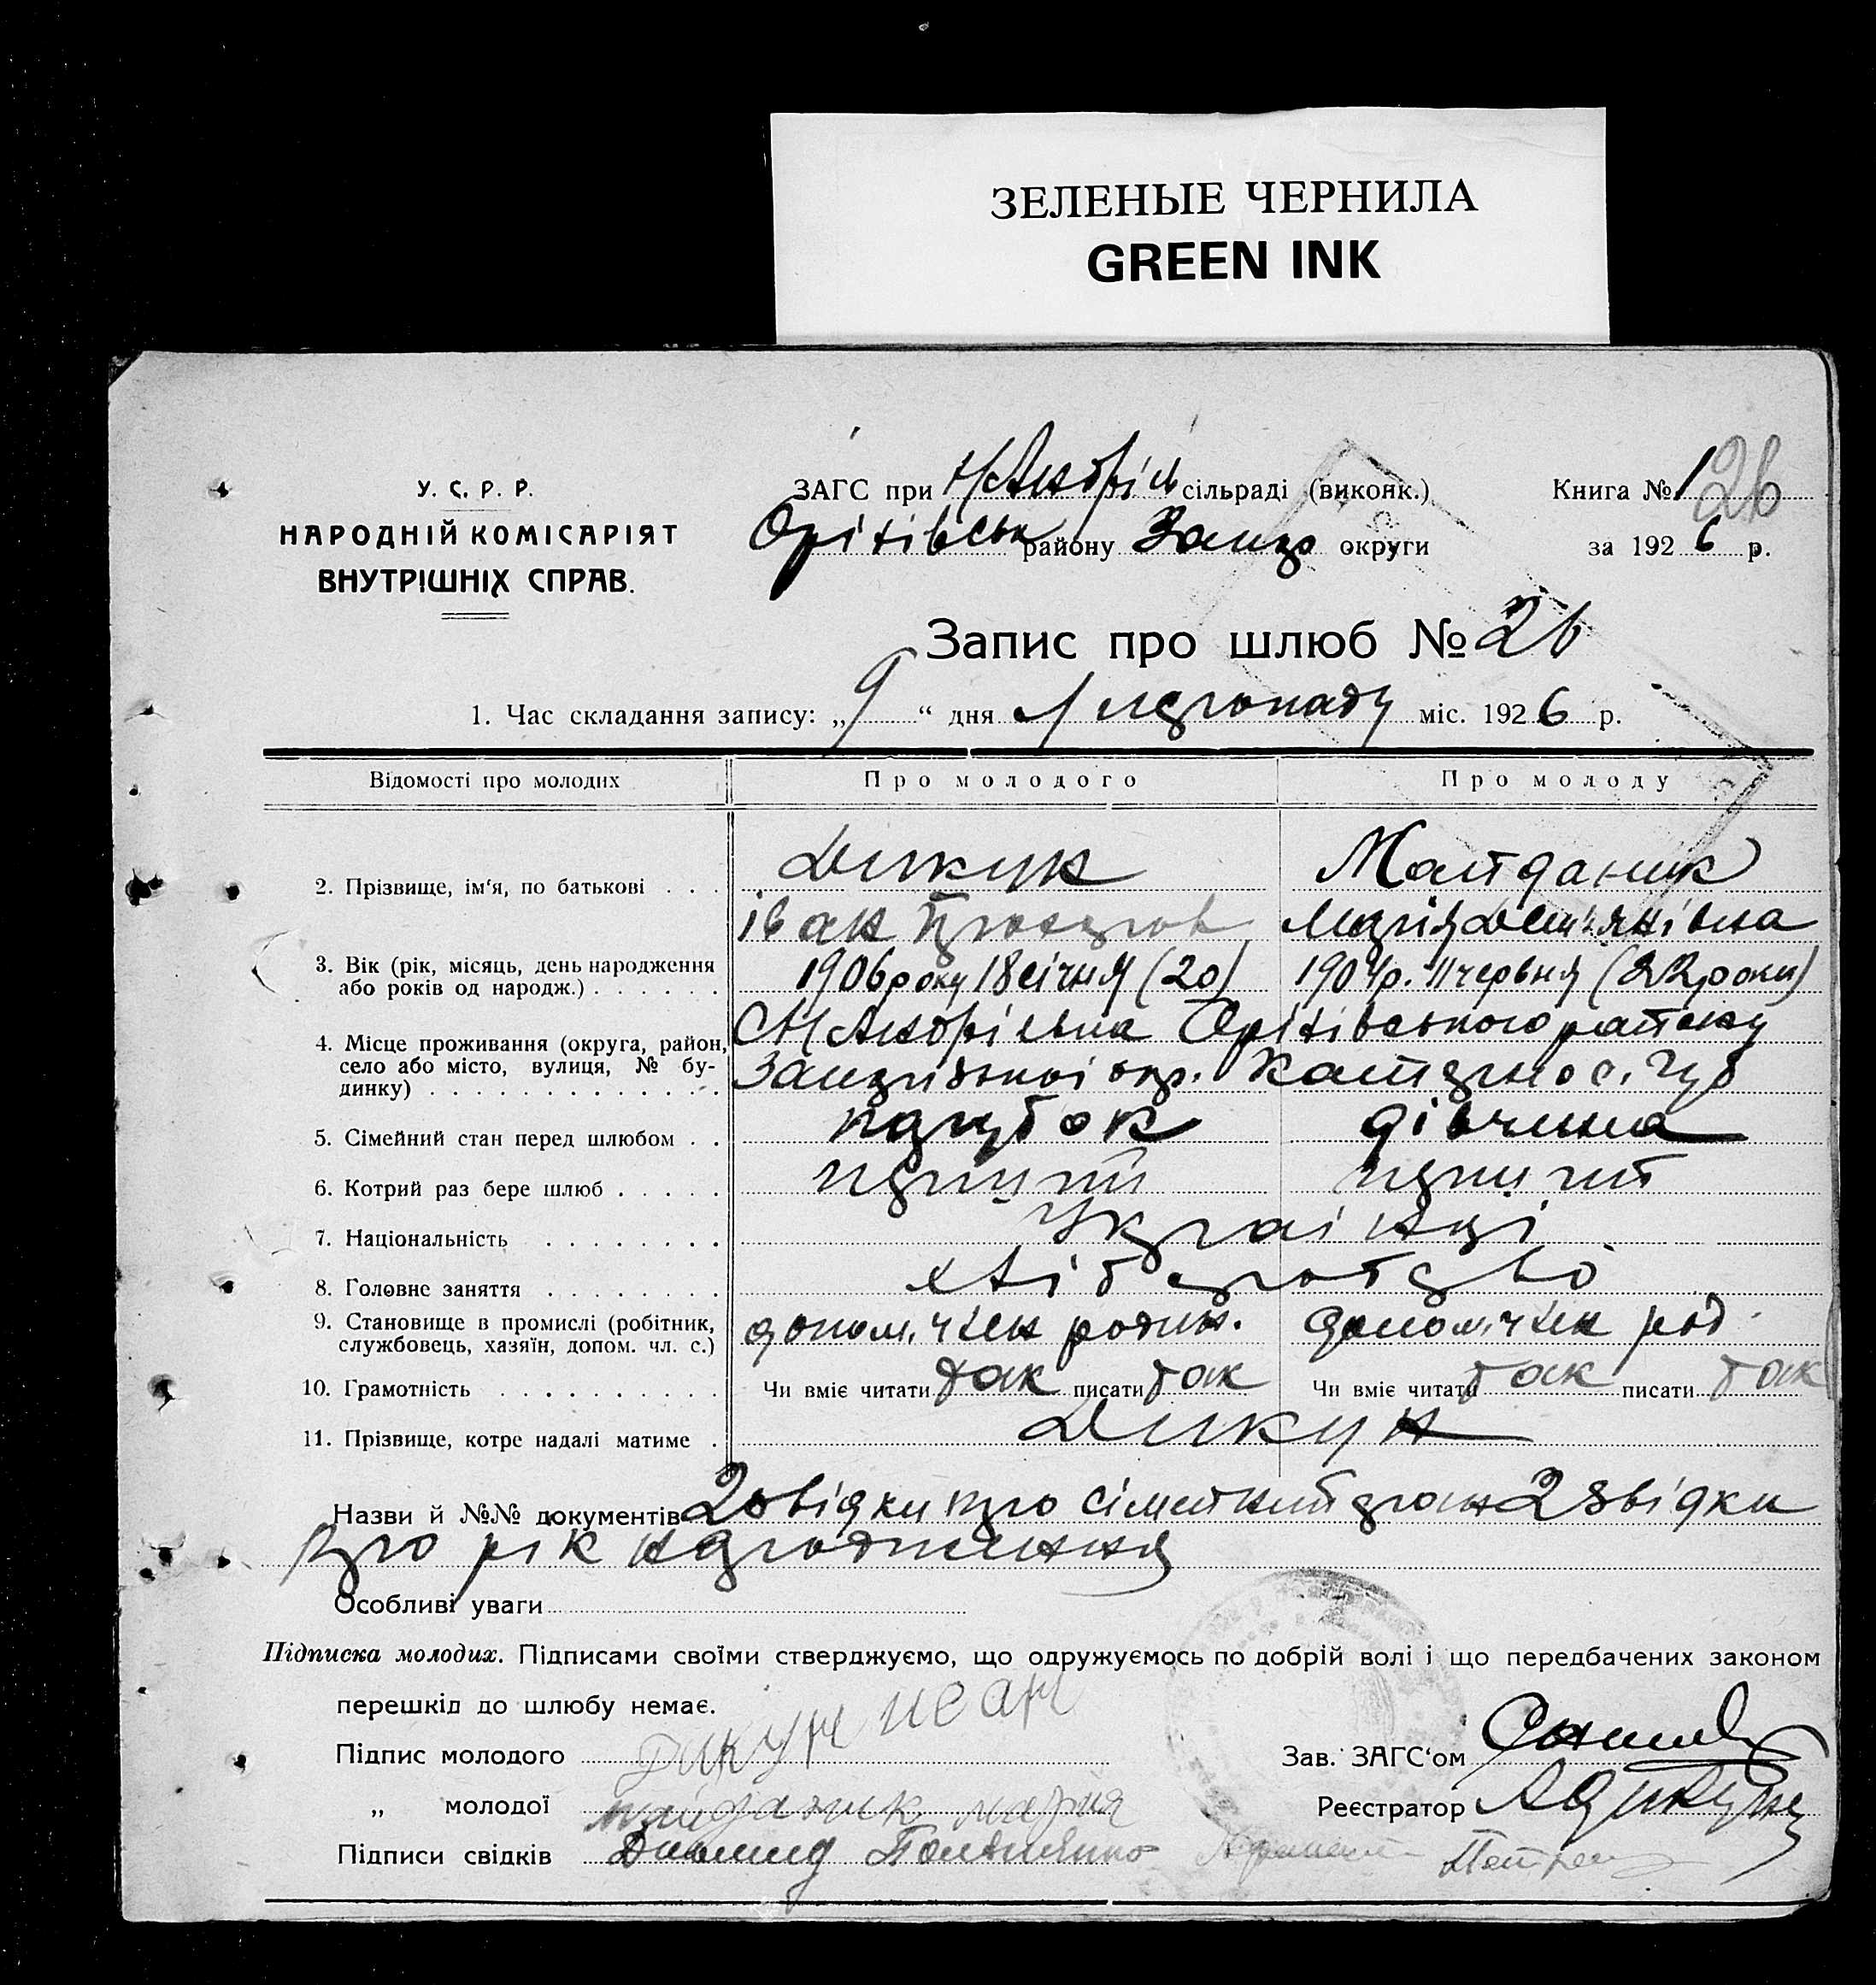 ЗЕЛЕНЫЕ ЧЕРНИЛА
GREEN INK
У. С. Р. Р.
НАРОДНІЙ КОМІСАРІЯТ
ВНУТРІШНІХ СПРАВ.
ЗАГС при сільраді (виконк.) Книга № 1 26
Оріхівськ району Запор округи за 1926 р.
Запис про шлюб № 26
1. Час складання запису: „9“ дня листопаду міс. 1926 р.
Відомості про молодих Про молодого Про молоду
2. Прізвище, ім'я, по батькові . . . Дикун Майданик
Іван Марія Дем'янівна
3. Вік (рік, місяць, день народження або років од народж.) . . . . . . 1906 року 18 січня (20) 1904 р. 11 червня (22 роки)
4. Місце проживання (округа, район, село або місто, вулиця, № будинку) . . . . . . . . . . . . . Оріхівського району
Запорізької окр.
5. Сімейний стан перед шлюбом . . парубок дівчина
6. Котрий раз бере шлюб . . . . . перший перший
7. Національність . . . . . . . . Українці
8. Головне заняття . . . . . . . . хліборобство
9. Становище в промислі (робітник, службовець, хазяїн, допом. чл. с.) допом. член родин. допом. член род.
10. Грамотність . . . . . . . . . . Чи вміє читати так писати так Чи вміє читати так писати так
11. Прізвище, котре надалі матиме . Дикун
Назви й №№ документів 2 звідки про сімейний стан 2 звідки
про рік народження
Особливі уваги
Підписка молодих. Підписами своїми стверджуємо, що одружуємось по добрій волі і що передбачених законом
перешкід до шлюбу немає.
Підпис молодого Дикун Иван
Зав. ЗАГС'ом
„ молодої майданик мария
Реєстратор
Підписи свідків